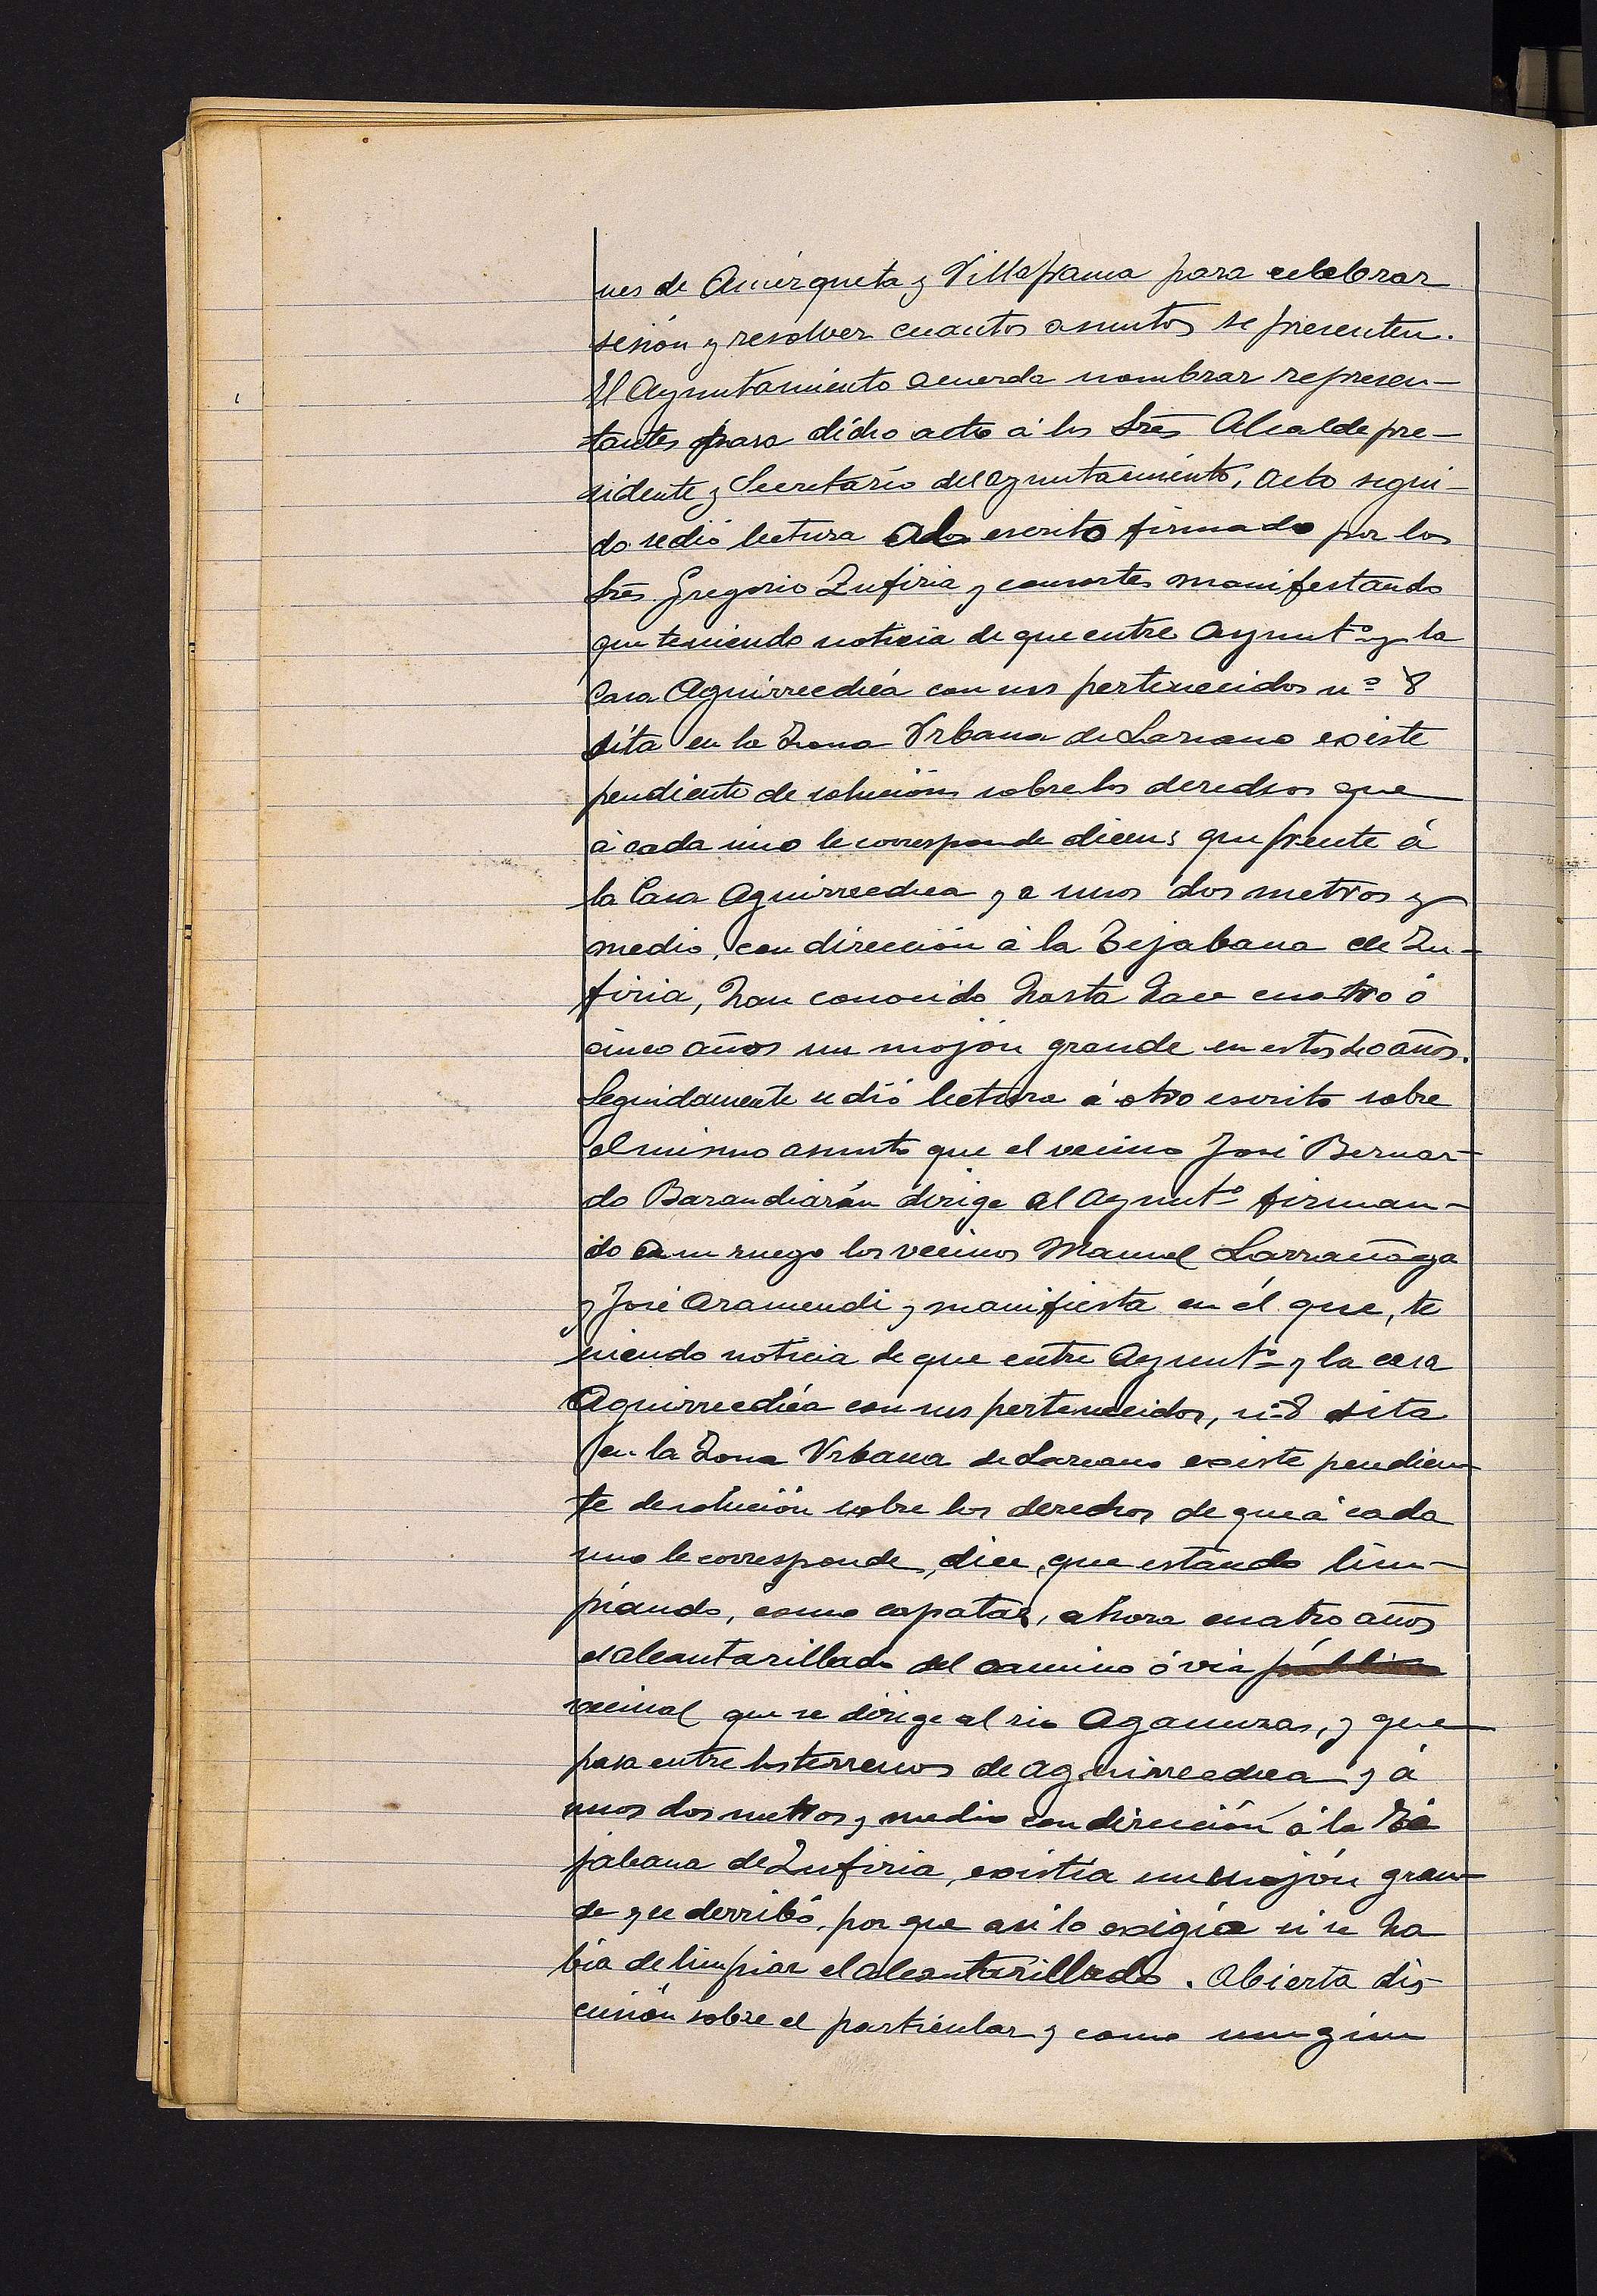 nes de Amézqueta y Villafranca para celebrar
sesión y resolver cuantos asuntos se presenten.
El Ayuntamiento acuerda nombrar represen-
tantes para dicho acto á los Sres Alcalde pre-
sidente y Secretario del Ayuntamiento, acto segui-
do se dió lectura al escrito firmado por los
Sres Gregorio Zufiria y consortes manifestando
que teniendo noticia de que entre Ayuntº y la
Casa Aguirreechea con sus pertenecidos nº 8
sita en la Zona Urbana de Lazcano existe
pendiente de solución sobre los derechos que
á cada uno le corresponde dicen; que frente á
la Casa Aguirreechea y a unos dos metros y
medio, con dirección á la Tejabana de Zu-
firia, han conocido hasta hace cuatro ó
cinco años un mojón grande en estos 40 años.
Seguidamente se dió lectura á otro escrito sobre
el mismo asunto que el vecino José Bernar-
do Barandiarán dirige al Ayuntº firman-
do a su ruego los vecinos Manuel Larrañaga
y José Aramendi y manifiesta en él que, te
niendo noticia de que entre Ayuntº y la casa
Aguirreechea con sus pertenecidos, nº 8 sita
en la Zona Urbana de Lazcano existe pendien-
te de solución sobre los derechos de que á cada
uno le corresponde, dice, que estando lim-
piando, como capataz, ahora cuatro años
el alcantarillado del camino ó via pública
vecinal que se dirige al rio Agaunza, y que
pasa entre los terrenos de Aguirreechea y á
unos dos metros y medio con dirección á la Te
jabana de Zufiria, existía un mojón gran-
de y se derribó, por que asi lo exigía si se ha
bía de limpiar el alcantarillado. Abierta dis
cusión sobre el particular y como ningun